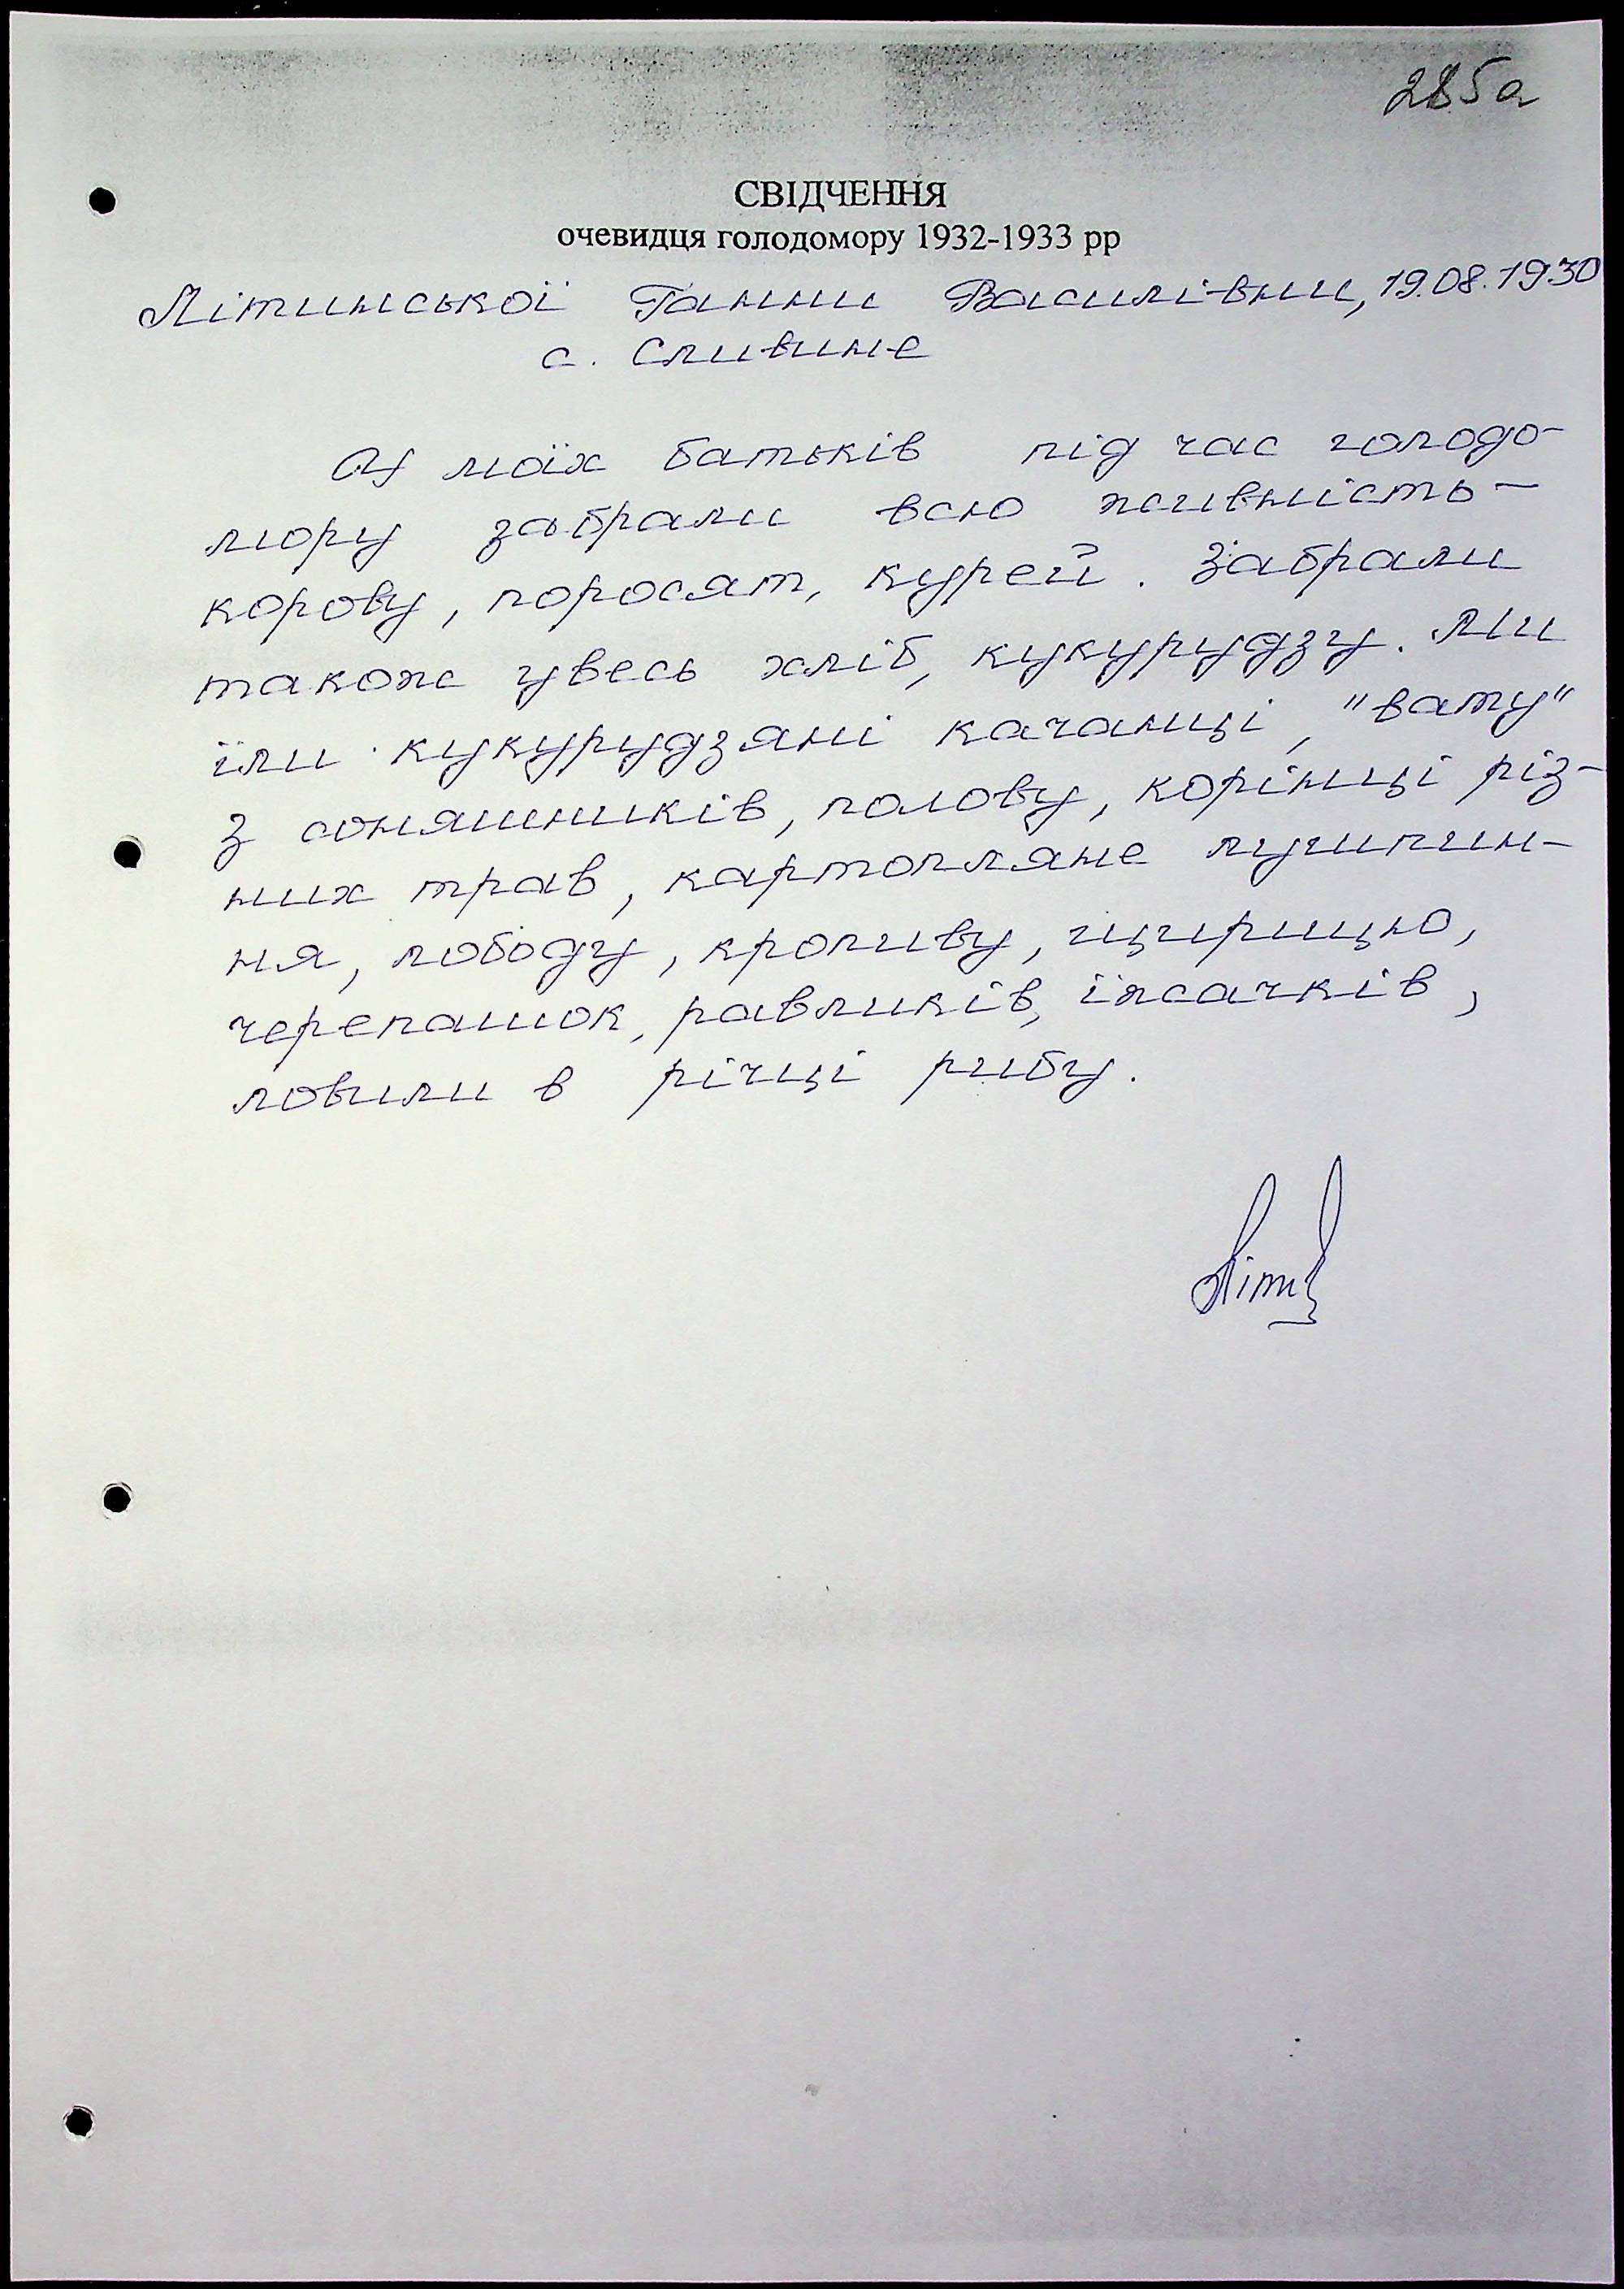 285а
СВІДЧЕННЯ
очевидця голодомору 1932-1933 рр
Літинської Ганни Василівни, 19.08.1930
с. Сливине
У моїх батьків під час голодо-
мору забрали всю живність -
корову, поросят, курей. Забрали
також увесь хліб, кукурудзу. Ми
їли кукурудзяні качанці, "вату"
з соняшників, полову, корінці різ-
них трав, картопляне лушпин-
ня, лободу, кропиву, щирицю,
черепашок, равликів, їжачків,
ловили в річці рибу.